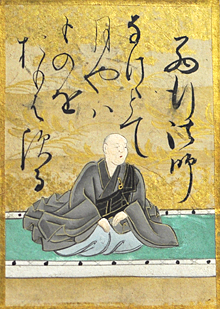 西行法師
なけゝとて
月やハ
ものを
おもはする